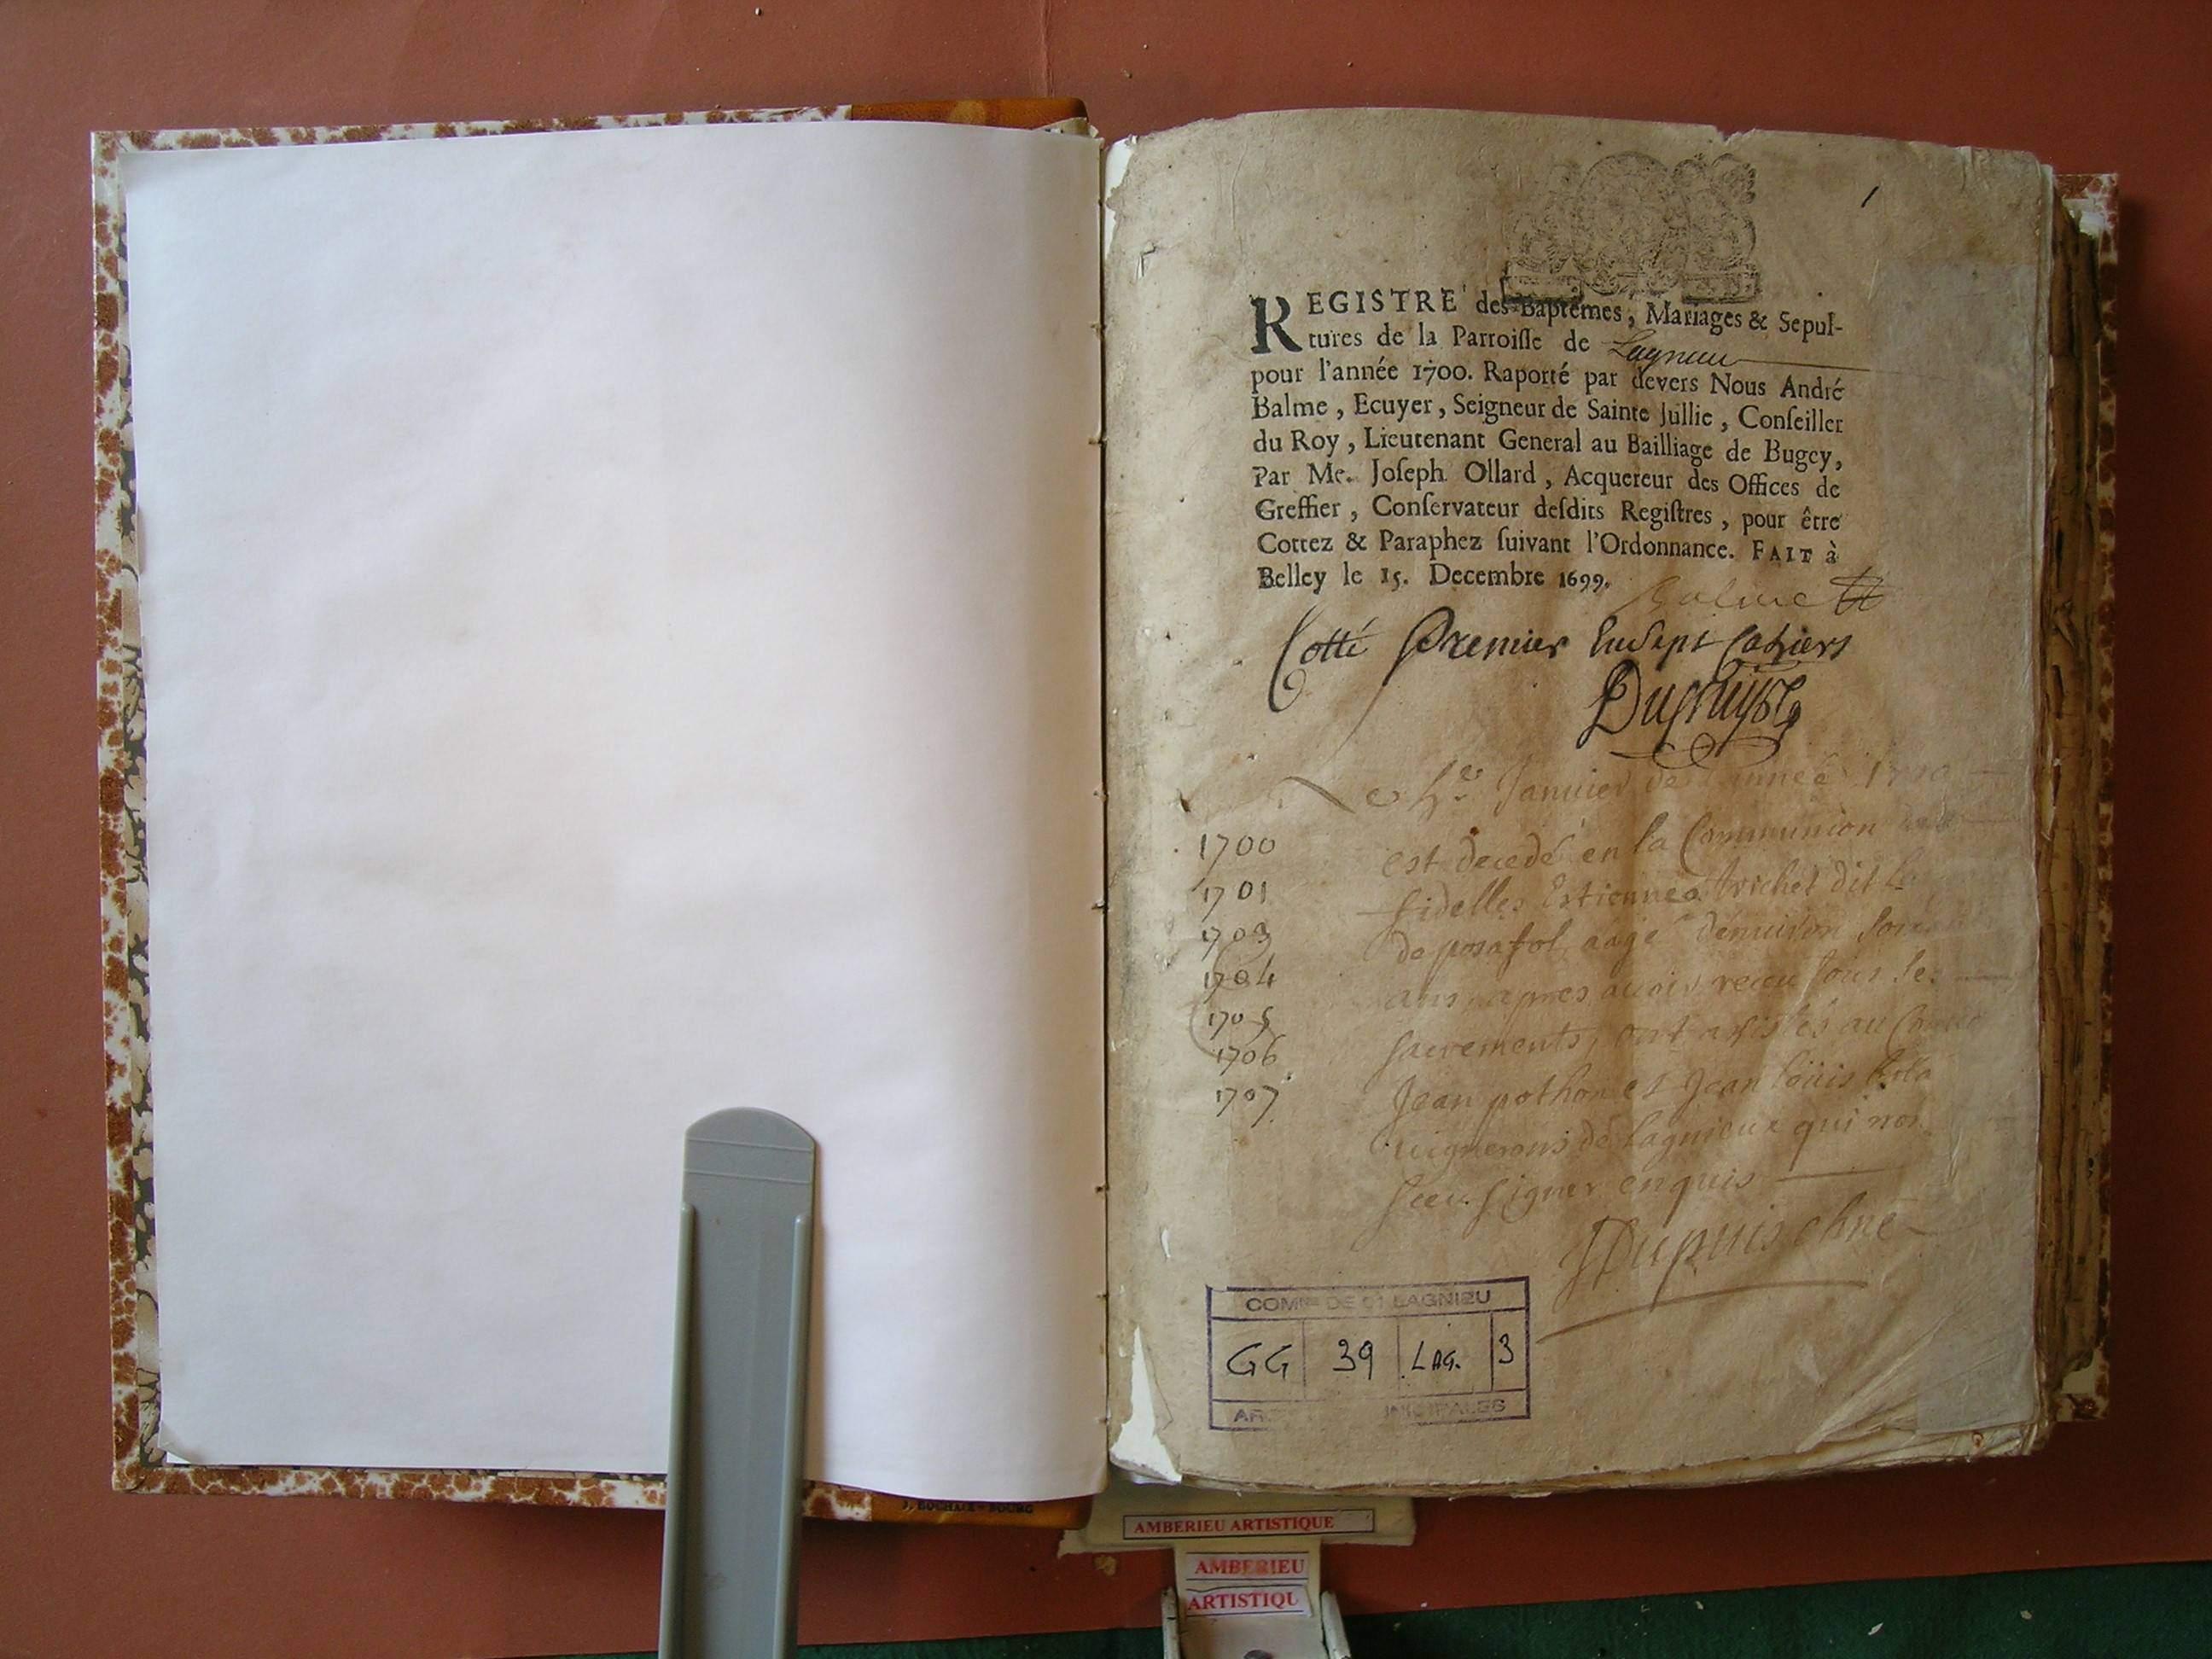 1
REGISTRE des Baptêmes, Mariages & Sepul-
tures de la Parroisse de Lagnieu
pour l'année 1700. Raporté par devers Nous André
Balme, Ecuyer, Seigneur de Sainte Jullie, Conseiller
du Roy, Lieutenant General au Bailliage de Bugey,
Par Me. Joseph Ollard, Acquereur des Offices de
Greffier, Conservateur desdits Registres, pour être
Cottez & Paraphez suivant l'Ordonnance. FAIT à
Belley le 15. Decembre 1699.
Balme
Cotté Premier Cahiers
Le Janvier de l'année 1700
est decedé en la Communion
fidelles Estienne trichet dit
de posafol, aagé denuiron
ans, apres auoir receu tous les
sacrements, ont assistés au
Jean pothon et Jean loüis
uignerons de lagnieux qui non
sceu signer enquis
Dupuis
1700
1701
1703
1704
1705
1706
1707
COMNE DE 01 LAGNIEU
GG 39 LAG. 3
J. ROCHAIX - BOURG
AMBERIEU ARTISTIQUE
AMBERIEU
ARTISTIQU